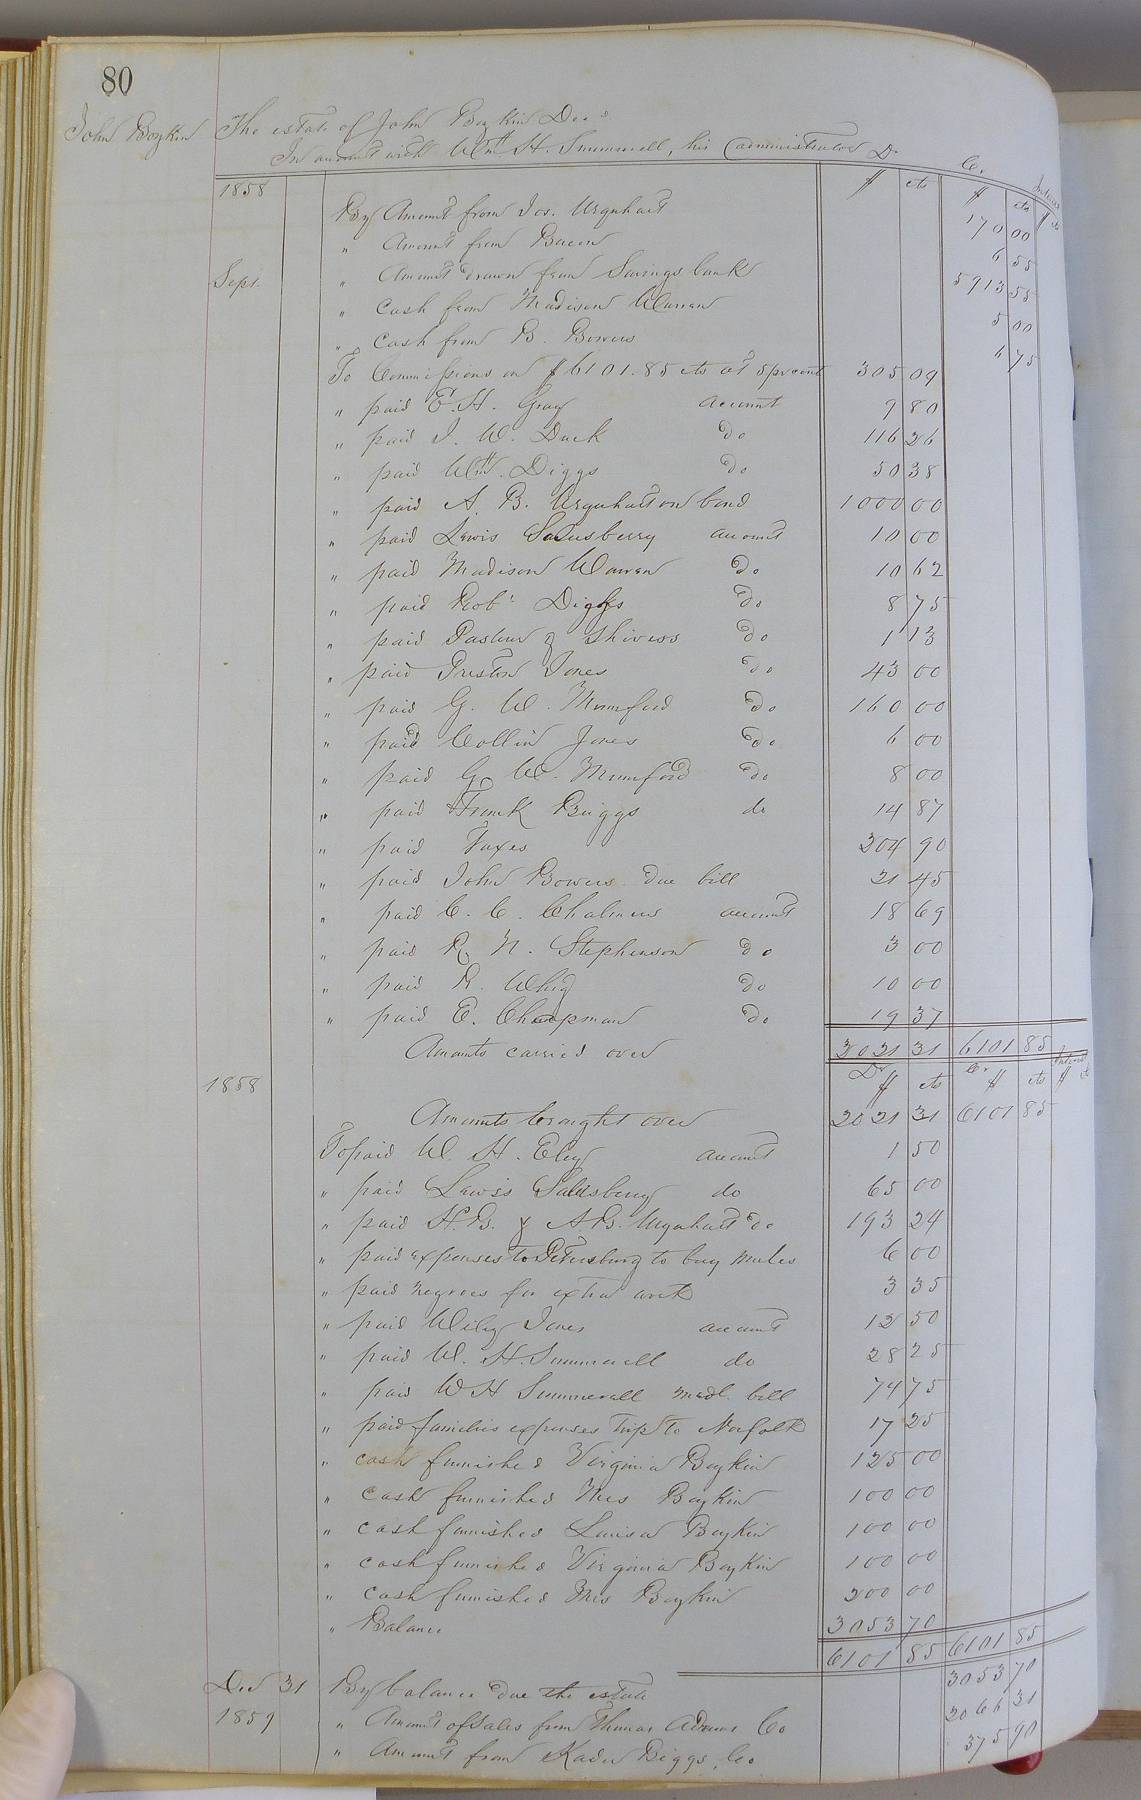 80
John Boykin The estate of John Boykin Decd
In account with Wm H. Summerell, his administrator Dr Cr. Interest
1858 $ cts $ cts $ cts
By Amount from Jos. Urquhart 170 00
" Amount from Bacon 6 55
Sept. " Amount drawn from Savings bank 5913 55
" Cash from Madison Warren 5 00
" Cash from B. Bowers 6 75
To Commissions on $6101.85 cts at 5 prcent 305 09
" paid E. H. Gray account 9 80
" paid J. W. Duck Do 116 26
" paid Wm. Diggs Do 50 38
" paid A. B. Urquhart on bond 1000 00
" paid Lewis Salusberry account 10 00
" paid Madison Warren Do 10 62
" paid Robt Diggs Do 8 75
" paid & Shivers Do 1 13
" paid Preston Jones Do 43 00
" paid G. W. Mumford Do 160 00
" paid Collin Jones Do 6 00
" paid G. W. Mumford Do 8 00
" paid Frank Briggs do 14 87
" paid Taxes 204 90
" paid John Bowers due bill 21 45
" paid C. C. Chalmers account 18 69
" paid R. N. Stephenson Do 3 00
" paid R. Whig Do 10 00
" paid E. Chapman Do 19 37
Amounts carried over 2021 31 6101 85
1858 Dr $ cts Cr $ cts Interest $ cts
Amounts brought over 2021 31 6101 85
To paid W. H. Eley account 1 50
" paid Lewis Salusbury do 65 00
" paid H. B. & A. B. Urquhart Do 193 24
" paid expenses to Petersburg to buy mules 6 00
" paid negroes for extra work 3 35
" paid Wiley Jones account 12 50
" paid W. H. Summerell do 28 25
" paid W H Summerell medl. bill 74 75
" paid families expenses Trip to Norfolk 17 25
" cash furnished Virginia Boykin 125 00
" cash furnished Mrs Boykin 100 00
" cash furnished Louisa Boykin 100 00
" cash furnished Virginia Boykin 100 00
" cash furnished Mrs Boykin 200 00
" Balance 3053 70
6101 85 6101 85
Decr 31 By balance due the estate 3053 70
1859 " Amount of sales from Thomas Adams Co 2066 31
" Amount from Kader Biggs Co 375 90